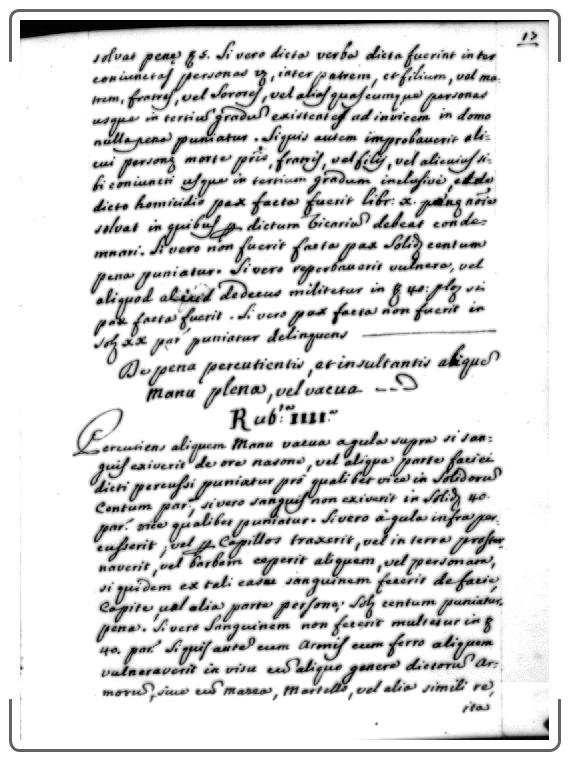 13
solvat penę ꝶ 5. Si vero dicta verba dicta fuerint inter
coniunctas personas vz, inter patrem, et filium, vel ma-
trem, fratres, vel Sorores, vel alias quascumque personas
usque in tertiũ gradũ existentes ad invicem in domo
nulla pena puniatur. Siquis autem improbaverit ali-
cui personę morte priis, francis, vel filis, vel alicuius si-
bi coniuncti usque in tertium gradum inclusivè,
dicto homicidio pax facta fuerit libr. x. penę noĩe
solvat in quibus ꝑ dictum Vicariũ debeat conde-
mnari. Si vero non fuerit facta pax Solid centum
pena puniatur. Si vero reperbaverit vulnera, vel
aliquod dedecus militetur in ꝶ 40: si
pax facta fuerit. Si vero pax facta non fuerit in
Solz xx par puniatur delinquens
De pena percutientis, et insultantis aliquẽ
Manu plena, vel vacua
Rub.ca IIII.a
Percutiens aliquem Manu vacua a gula supra si san-
guis exiverit de ore naso ne, vel aliqua parte faciei
dicti percussi puniatur pro qualibet vice in Solidorũ
Centum par, si vero sanguis non exiverit in Solidz 40.
par. vice qualibet puniatur. Si vero à gula infra per-
cusserit, vel ꝑ Capillos traxerit, vel in terra proster-
naverit, vel barbam ceperit aliquem, vel personam,
si quidem ex tali casu sanguinem fecerit de facie,
Capite, vel alia parte personę. Solz centum puniatur
pena. Si vero Sanguinem non fecerit multetur in ꝶ
40. par. Siquis ante cum Armis cum ferro aliquem
vulneraverit in visu cũ aliquo genere dictorũ Ar-
morũ, sive cũ Mazza, Martello, vel alia simili re,
ita